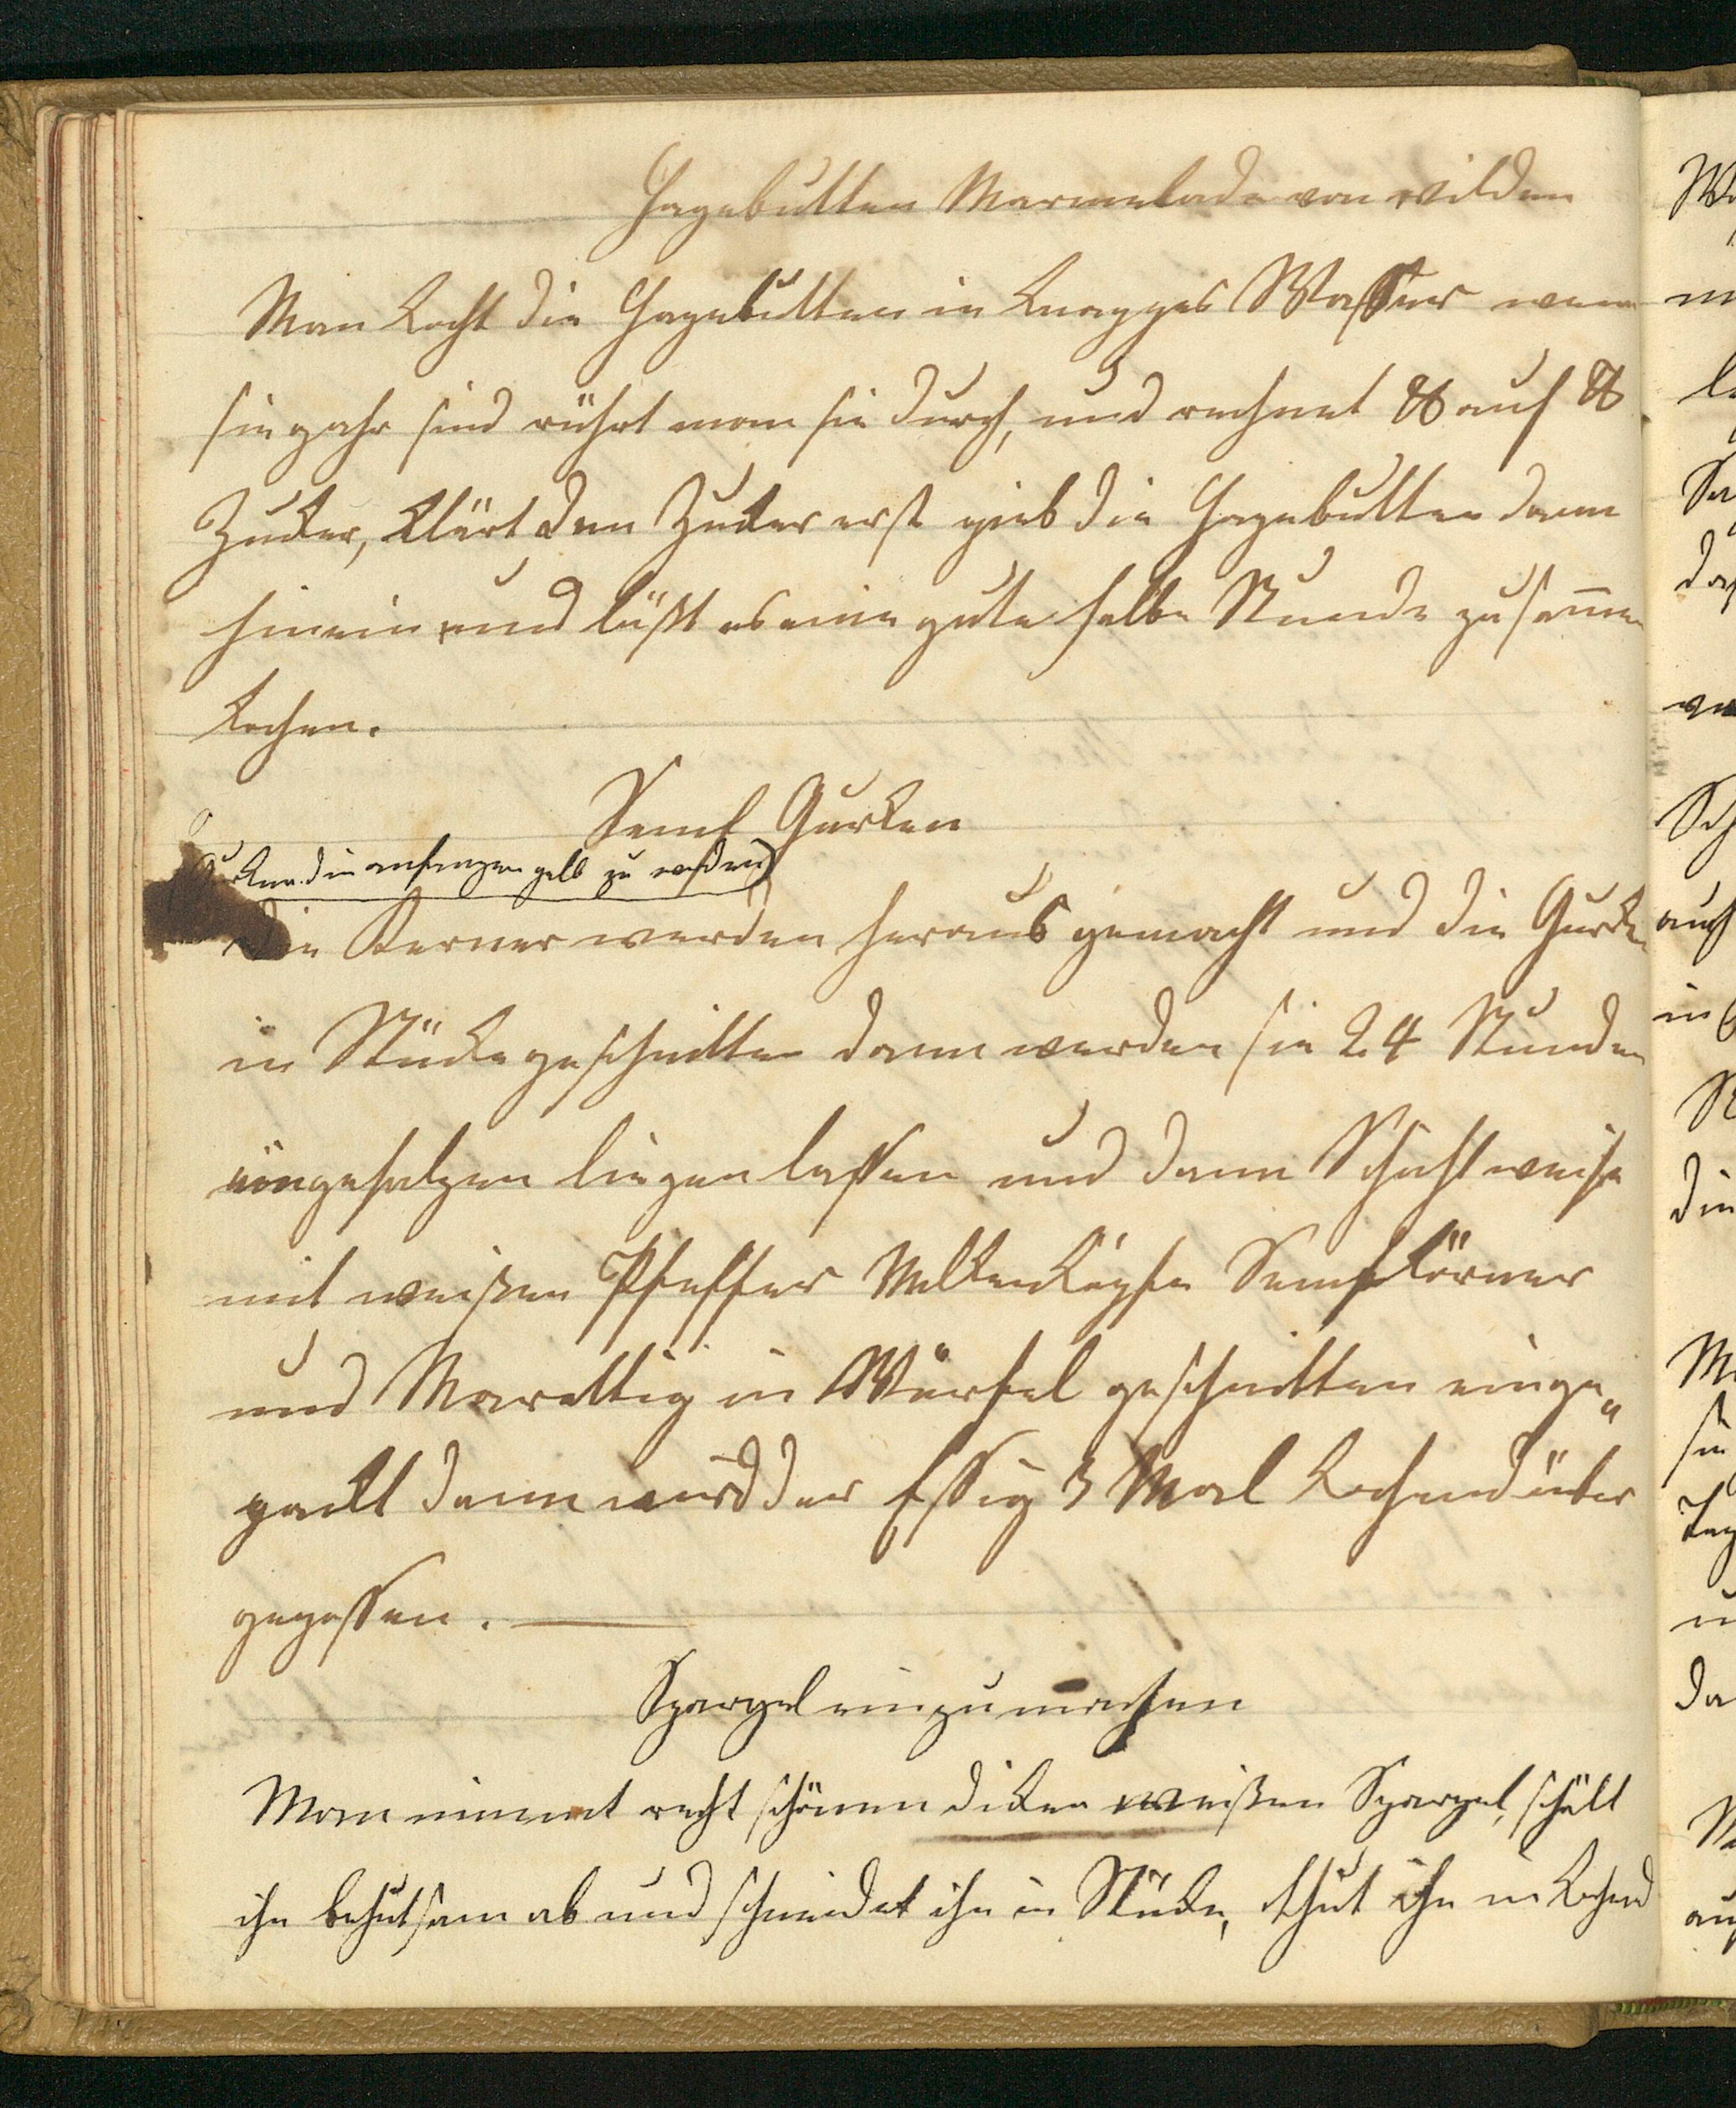 Hagebutten Marmelade von wilden
Man kocht die Hagebutten in knappes Wasser wenn
sie gahr sind rührt man sie durch, und rechnet ℔ auf ℔
Zucker, klärt den Zucker erst gieb die Hagebutten dann
hinein und läßt es eine gute halbe Stunde zusam̅en
kochen.
Senf Gurken
Gurken die anfangen gelb zu werden)
Die Kerner werden heraus gemacht und die Gurken
in Stücke geschnitten dann werden sie 24 Stunden
eingesalzen liegen lassen und dann Schichtweise
mit weißen Pfeffer Nelkenköpfe Senfkörner
und Marettig in Würfel geschnitten einge„
packt dann wird der Essig 3 Mal kochend über
gegossen.
Spargel einzumachen
Man nimmt recht schönen dicken weißen Spargel, schält
ihn behutsam ab und schneidet ihn in Stücke, thut ihn in kochend
auch
in
die